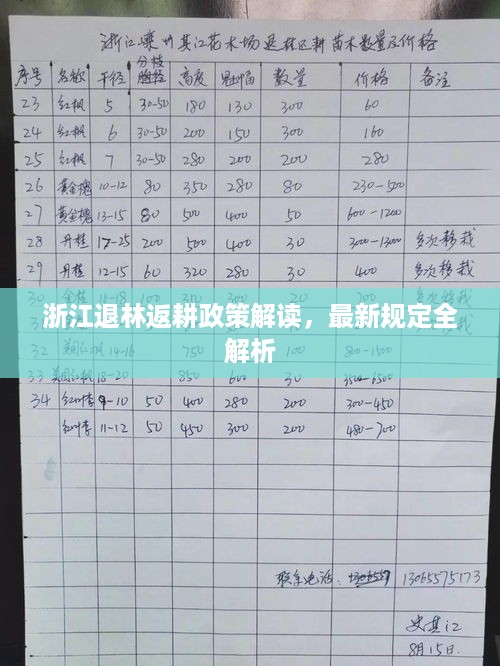 浙江嵊州其江花木场退林还耕苗木数量及价格
序号 名称 干径 分枝胸径 高度 冠幅 数量 价格 备注
23 红枫 5 30-50 180 130 300 60
24 红枫 6 30-50 200 150 300 160
25 红枫 7 30-50 280 200 200 280
26 黄金槐 10-12 80 350 280 80 230-500
27 黄金槐 13-15 80 500 400 50 600-1200
28 丹桂 17-25 200 500 400 30 3000-13000 多次移栽
29 丹桂 12-15 60 320 280 30 400 多次移栽
浙江退林返耕政策解读，最新规定全
解析
32 美国红枫 14-16 750 100 800-1500
33 美国红枫 18-20 850 600 30 3500-6500
34 红叶李 9-10 50 400 280 200 300-450
红叶李 11-12 50 450 300 200 480-700
联系电话: 13065575173
史其江
8月15日